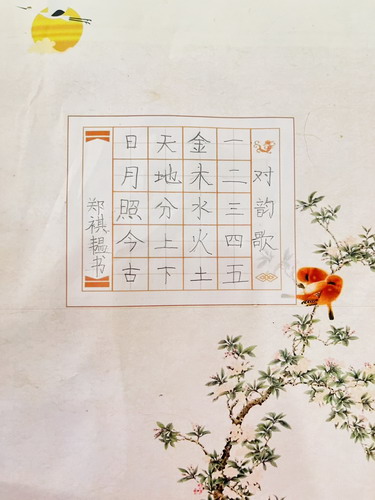 对韵歌
一二三四五
金木水火土
天地分上下
日月照今古
郑祺韫书